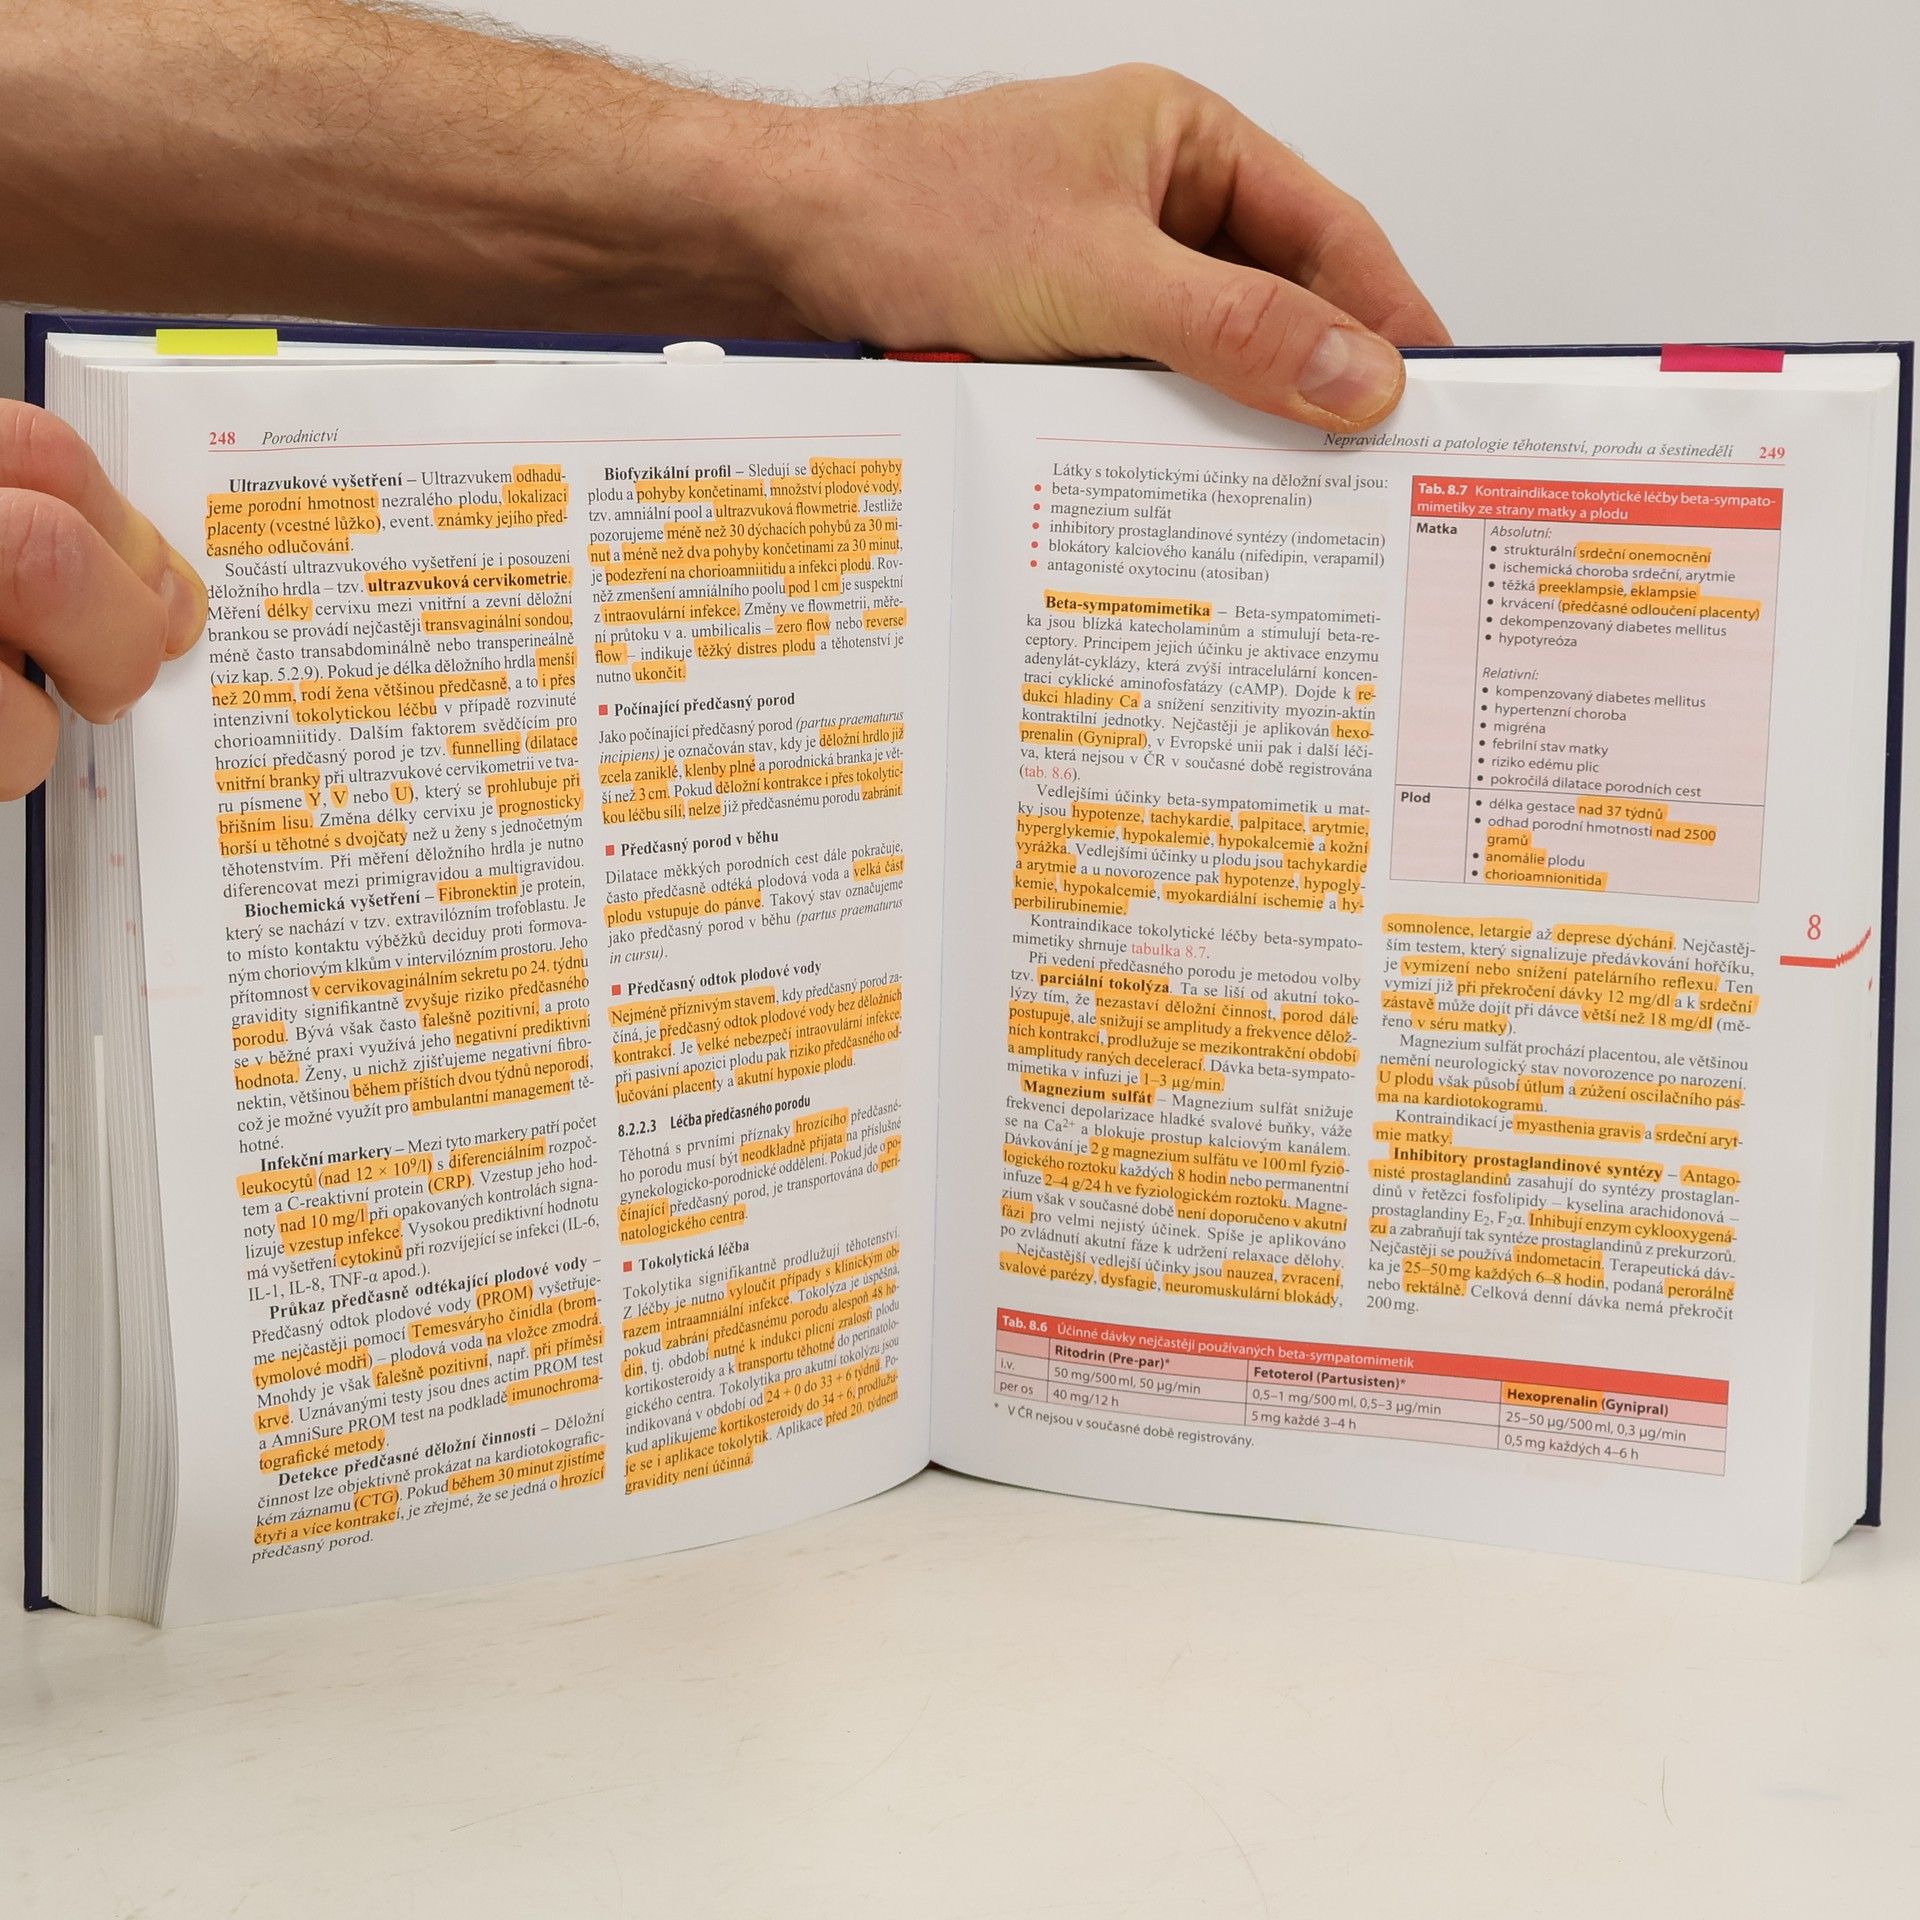 248 Porodnictví
Ultrazvukové vyšetření – Ultrazvukem odhadu-
jeme porodní hmotnost nezralého plodu, lokalizaci
placenty (vcestné lůžko), event. známky jejího před-
časného odlučování.
Součástí ultrazvukového vyšetření je i posouzení
děložního hrdla – tzv. ultrazvuková cervikometrie.
Měření délky cervixu mezi vnitřní a zevní děložní
brankou se provádí nejčastěji transvaginální sondou,
méně často transabdominálně nebo transperineálně
(viz kap. 5.2.9). Pokud je délka děložního hrdla menší
než 20 mm, rodí žena většinou předčasně, a to i přes
intenzivní tokolytickou léčbu v případě rozvinuté
chorioamniitidy. Dalším faktorem svědčícím pro
hrozící předčasný porod je tzv. funnelling (dilatace
vnitřní branky při ultrazvukové cervikometrii ve tva-
ru písmene Y, V nebo U), který se prohlubuje při
břišním lisu. Změna délky cervixu je prognosticky
horší u těhotné s dvojčaty než u ženy s jednočetným
těhotenstvím. Při měření děložního hrdla je nutno
diferencovat mezi primigravidou a multigravidou.
Biochemická vyšetření – Fibronektin je protein,
který se nachází v tzv. extravilózním trofoblastu. Je
to místo kontaktu výběžků deciduy proti formova-
ným choriovým klkům v intervilózním prostoru. Jeho
přítomnost v cervikovaginálním sekretu po 24. týdnu
gravidity signifikantně zvyšuje riziko předčasného
porodu. Bývá však často falešně pozitivní, a proto
se v běžné praxi využívá jeho negativní prediktivní
hodnota. Ženy, u nichž zjišťujeme negativní fibro-
nektin, většinou během příštích dvou týdnů neporodí,
což je možné využít pro ambulantní management tě-
hotné.
Infekční markery – Mezi tyto markery patří počet
leukocytů (nad 12 × 10⁹/l) s diferenciálním rozpoč-
tem a C-reaktivní protein (CRP). Vzestup jeho hod-
noty nad 10 mg/l při opakovaných kontrolách signa-
lizuje vzestup infekce. Vysokou prediktivní hodnotu
má vyšetření cytokinů při rozvíjející se infekci (IL-6,
IL-1, IL-8, TNF-α apod.).
Průkaz předčasně odtékající plodové vody –
Předčasný odtok plodové vody (PROM) vyšetřuje-
me nejčastěji pomocí Temesváryho činidla (brom-
tymolové modři) – plodová voda na vložce zmodrá.
Mnohdy je však falešně pozitivní, např. při příměsi
krve. Uznávanými testy jsou dnes actim PROM test
a AmniSure PROM test na podkladě imunochroma-
tografické metody.
Detekce předčasné děložní činnosti – Děložní
činnost lze objektivně prokázat na kardiotokografic-
kém záznamu (CTG). Pokud během 30 minut zjistíme
čtyři a více kontrakcí, je zřejmé, že se jedná o hrozící
předčasný porod.
Biofyzikální profil – Sledují se dýchací pohyby
plodu a pohyby končetinami, množství plodové vody,
tzv. amniální pool a ultrazvuková flowmetrie. Jestliže
pozorujeme méně než 30 dýchacích pohybů za 30 mi-
nut a méně než dva pohyby končetinami za 30 minut,
je podezření na chorioamniitidu a infekci plodu. Rov-
něž zmenšení amniálního poolu pod 1 cm je suspektní
z intraovulární infekce. Změny ve flowmetrii, měře-
ní průtoku v a. umbilicalis – zero flow nebo reverse
flow – indikuje těžký distres plodu a těhotenství je
nutno ukončit.
■ Počínající předčasný porod
Jako počínající předčasný porod (partus praematurus
incipiens) je označován stav, kdy je děložní hrdlo již
zcela zaniklé, klenby plné a porodnická branka je vět-
ší než 3 cm. Pokud děložní kontrakce i přes tokolytic-
kou léčbu sílí, nelze již předčasnému porodu zabránit.
■ Předčasný porod v běhu
Dilatace měkkých porodních cest dále pokračuje,
často předčasně odtéká plodová voda a velká část
plodu vstupuje do pánve. Takový stav označujeme
jako předčasný porod v běhu (partus praematurus
in cursu).
■ Předčasný odtok plodové vody
Nejméně příznivým stavem, kdy předčasný porod za-
číná, je předčasný odtok plodové vody bez děložních
kontrakcí. Je velké nebezpečí intraovulární infekce,
při pasivní apozici plodu pak riziko předčasného od-
lučování placenty a akutní hypoxie plodu.
8.2.2.3 Léčba předčasného porodu
Těhotná s prvními příznaky hrozícího předčasné-
ho porodu musí být neodkladně přijata na příslušné
gynekologicko-porodnické oddělení. Pokud jde o po-
čínající předčasný porod, je transportována do peri-
natologického centra.
■ Tokolytická léčba
Tokolytika signifikantně prodlužují těhotenství.
Z léčby je nutno vyloučit případy s klinickým ob-
razem intraamniální infekce. Tokolýza je úspěšná,
pokud zabrání předčasnému porodu alespoň 48 ho-
din, tj. období nutné k indukci plicní zralosti plodu
kortikosteroidy a k transportu těhotné do perinatolo-
gického centra. Tokolytika pro akutní tokolýzu jsou
indikovaná v období od 24 + 0 do 33 + 6 týdnů. Po-
kud aplikujeme kortikosteroidy do 34 + 6, prodlužu-
je se i aplikace tokolytik. Aplikace před 20. týdnem
gravidity není účinná.
Nepravidelnosti a patologie těhotenství, porodu a šestinedělí 249
Látky s tokolytickými účinky na děložní sval jsou:
• beta-sympatomimetika (hexoprenalin)
• magnezium sulfát
• inhibitory prostaglandinové syntézy (indometacin)
• blokátory kalciového kanálu (nifedipin, verapamil)
• antagonisté oxytocinu (atosiban)
Beta-sympatomimetika – Beta-sympatomimeti-
ka jsou blízká katecholaminům a stimulují beta-re-
ceptory. Principem jejich účinku je aktivace enzymu
adenylát-cyklázy, která zvýší intracelulární koncen-
traci cyklické aminofosfatázy (cAMP). Dojde k re-
dukci hladiny Ca a snížení senzitivity myozin-aktin
kontraktilní jednotky. Nejčastěji je aplikován hexo-
prenalin (Gynipral), v Evropské unii pak i další léči-
va, která nejsou v ČR v současné době registrována
(tab. 8.6).
Vedlejšími účinky beta-sympatomimetik u mat-
ky jsou hypotenze, tachykardie, palpitace, arytmie,
hyperglykemie, hypokalemie, hypokalcemie a kožní
vyrážka. Vedlejšími účinky u plodu jsou tachykardie
a arytmie a u novorozence pak hypotenze, hypogly-
kemie, hypokalcemie, myokardiální ischemie a hy-
perbilirubinemie.
Kontraindikace tokolytické léčby beta-sympato-
mimetiky shrnuje tabulka 8.7.
Při vedení předčasného porodu je metodou volby
tzv. parciální tokolýza. Ta se liší od akutní toko-
lýzy tím, že nezastaví děložní činnost, porod dále
postupuje, ale snižují se amplitudy a frekvence dělož-
ních kontrakcí, prodlužuje se mezikontrakční období
a amplitudy raných decelerací. Dávka beta-sympato-
mimetika v infuzi je 1–3 µg/min.
Magnezium sulfát – Magnezium sulfát snižuje
frekvenci depolarizace hladké svalové buňky, váže
se na Ca²⁺ a blokuje prostup kalciovým kanálem.
Dávkování je 2 g magnezium sulfátu ve 100 ml fyzio-
logického roztoku každých 8 hodin nebo permanentní
infuze 2–4 g/24 h ve fyziologickém roztoku. Magne-
zium však v současné době není doporučeno v akutní
fázi pro velmi nejistý účinek. Spíše je aplikováno
po zvládnutí akutní fáze k udržení relaxace dělohy.
Nejčastější vedlejší účinky jsou nauzea, zvracení,
svalové parézy, dysfagie, neuromuskulární blokády,
Tab. 8.7 Kontraindikace tokolytické léčby beta-sympato-
mimetiky ze strany matky a plodu
Matka Absolutní:
• strukturální srdeční onemocnění
• ischemická choroba srdeční, arytmie
• těžká preeklampsie, eklampsie
• krvácení (předčasné odloučení placenty)
• dekompenzovaný diabetes mellitus
• hypotyreóza
Relativní:
• kompenzovaný diabetes mellitus
• hypertenzní choroba
• migréna
• febrilní stav matky
• riziko edému plic
• pokročilá dilatace porodních cest
Plod • délka gestace nad 37 týdnů
• odhad porodní hmotnosti nad 2500
gramů
• anomálie plodu
• chorioamnionitida
somnolence, letargie až deprese dýchání. Nejčastěj-
ším testem, který signalizuje předávkování hořčíku,
je vymizení nebo snížení patelárního reflexu. Ten
vymizí již při překročení dávky 12 mg/dl a k srdeční
zástavě může dojít při dávce větší než 18 mg/dl (mě-
řeno v séru matky).
Magnezium sulfát prochází placentou, ale většinou
nemění neurologický stav novorozence po narození.
U plodu však působí útlum a zúžení oscilačního pás-
ma na kardiotokogramu.
Kontraindikací je myasthenia gravis a srdeční aryt-
mie matky.
Inhibitory prostaglandinové syntézy – Antago-
nisté prostaglandinů zasahují do syntézy prostaglan-
dinů v řetězci fosfolipidy – kyselina arachidonová –
prostaglandiny E₂, F₂α. Inhibují enzym cyklooxygená-
zu a zabraňují tak syntéze prostaglandinů z prekurzorů.
Nejčastěji se používá indometacin. Terapeutická dáv-
ka je 25–50 mg každých 6–8 hodin, podaná perorálně
nebo rektálně. Celková denní dávka nemá překročit
200 mg.
8
Tab. 8.6 Účinné dávky nejčastěji používaných beta-sympatomimetik
Ritodrin (Pre-par)* Fetoterol (Partusisten)* Hexoprenalin (Gynipral)
i.v. 50 mg/500 ml, 50 µg/min 0,5–1 mg/500 ml, 0,5–3 µg/min 25–50 µg/500 ml, 0,3 µg/min
per os 40 mg/12 h 5 mg každé 3–4 h 0,5 mg každých 4–6 h
* V ČR nejsou v současné době registrovány.